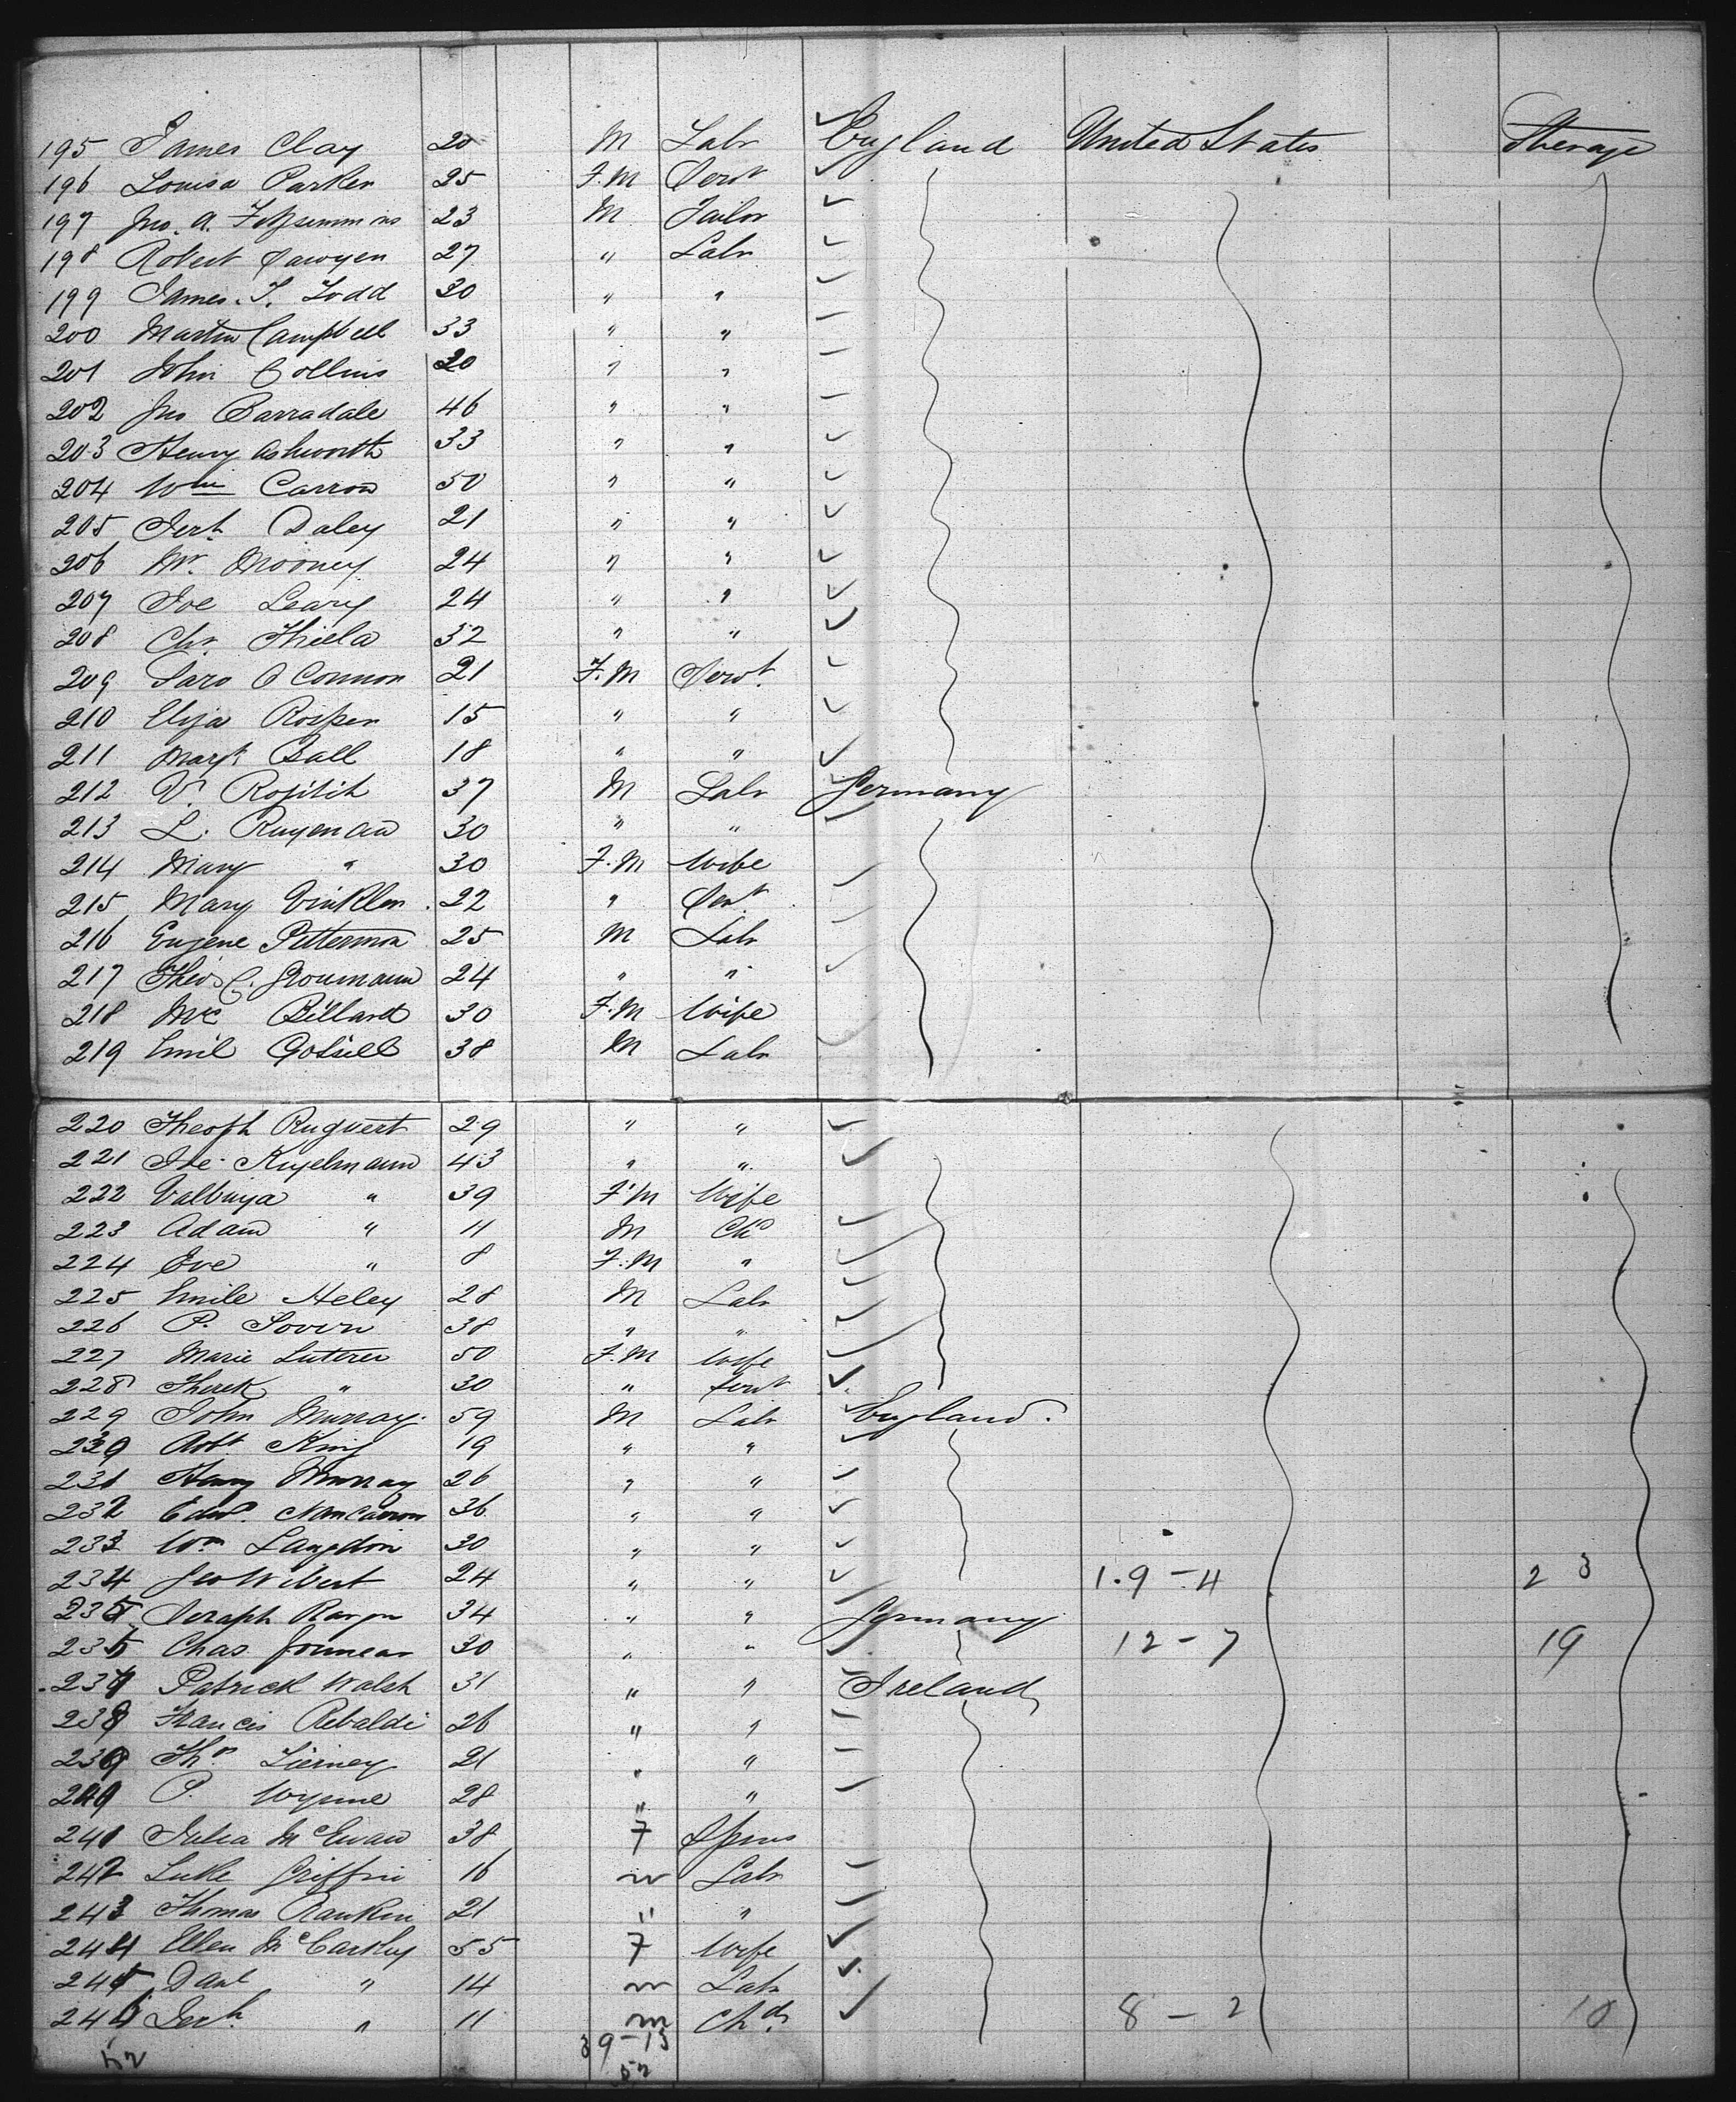 195 James Clay 20 M Labr England United States Steerage
196 Louisa Parker 25 F.M Servt
197 Jno. A. Fitzsimmons 23 M Tailor
198 Robert Sawyer 27 " Labr
199 James. T. Todd 30 " "
200 Martin Campbell 33 " "
201 John Collins 20 " "
202 Jno Barradale 46 " "
203 Henry Ashworth 33 " "
204 Wm Carron 50 " "
205 Jerh Daley 21 " "
206 Mooney 24 " "
207 Joe Leary 24 " "
208 Chr. Thiela 32 " "
209 O Connor 21 F.M Servt.
210 Eliza 15 " "
211 Margt Ball 18 " "
212 V. 37 M Labr Germany
213 L. 30 " "
214 Mary " 30 F.M Wife
215 Mary Vinkler 22 " Sert
216 Eugene Petterman 25 M Labr
217 Theo. C. Groumann 24 " "
218 Billard 30 F.M Wife
219 Emil 38 M Labr
220 Theoph Rugvert 29 " "
221 Joe Kugelmann 43 " "
222 " 39 F.M Wife
223 Adam " 11 M Chd
224 Eve " 8 F.M "
225 Emile Heley 28 M Labr
226 P. 38 " "
227 Marie Luterer 50 F.M Wife
228 " 30 " Servt
229 John Murray 59 M Labr England.
230 Robt King 19 " "
231 Henry Murray 26 " "
232 Edwd. Nancarrow 36 " "
233 Wm Langdon 30 " "
234 Geo Wibert 24 " " 1.9 - 4 23
235 Seraph 34 " " Germany
236 Chas 30 " " 12 - 7 19
237 Patrick Walsh 31 " " Ireland
238 Francis Rebaldi 26 " "
239 Ths Tierney 21 " "
240 P. Wynne 28 " "
241 Julia McEwan 38 F Spins
242 Luke Griffin 16 m Labr
243 Thomas Rankin 21 " "
244 Ellen McCarthy 55 F Wife
245 Danl " 14 m Labr
246 Jerh " 11 m Chd. 8 - 2 10
52 39-13
52